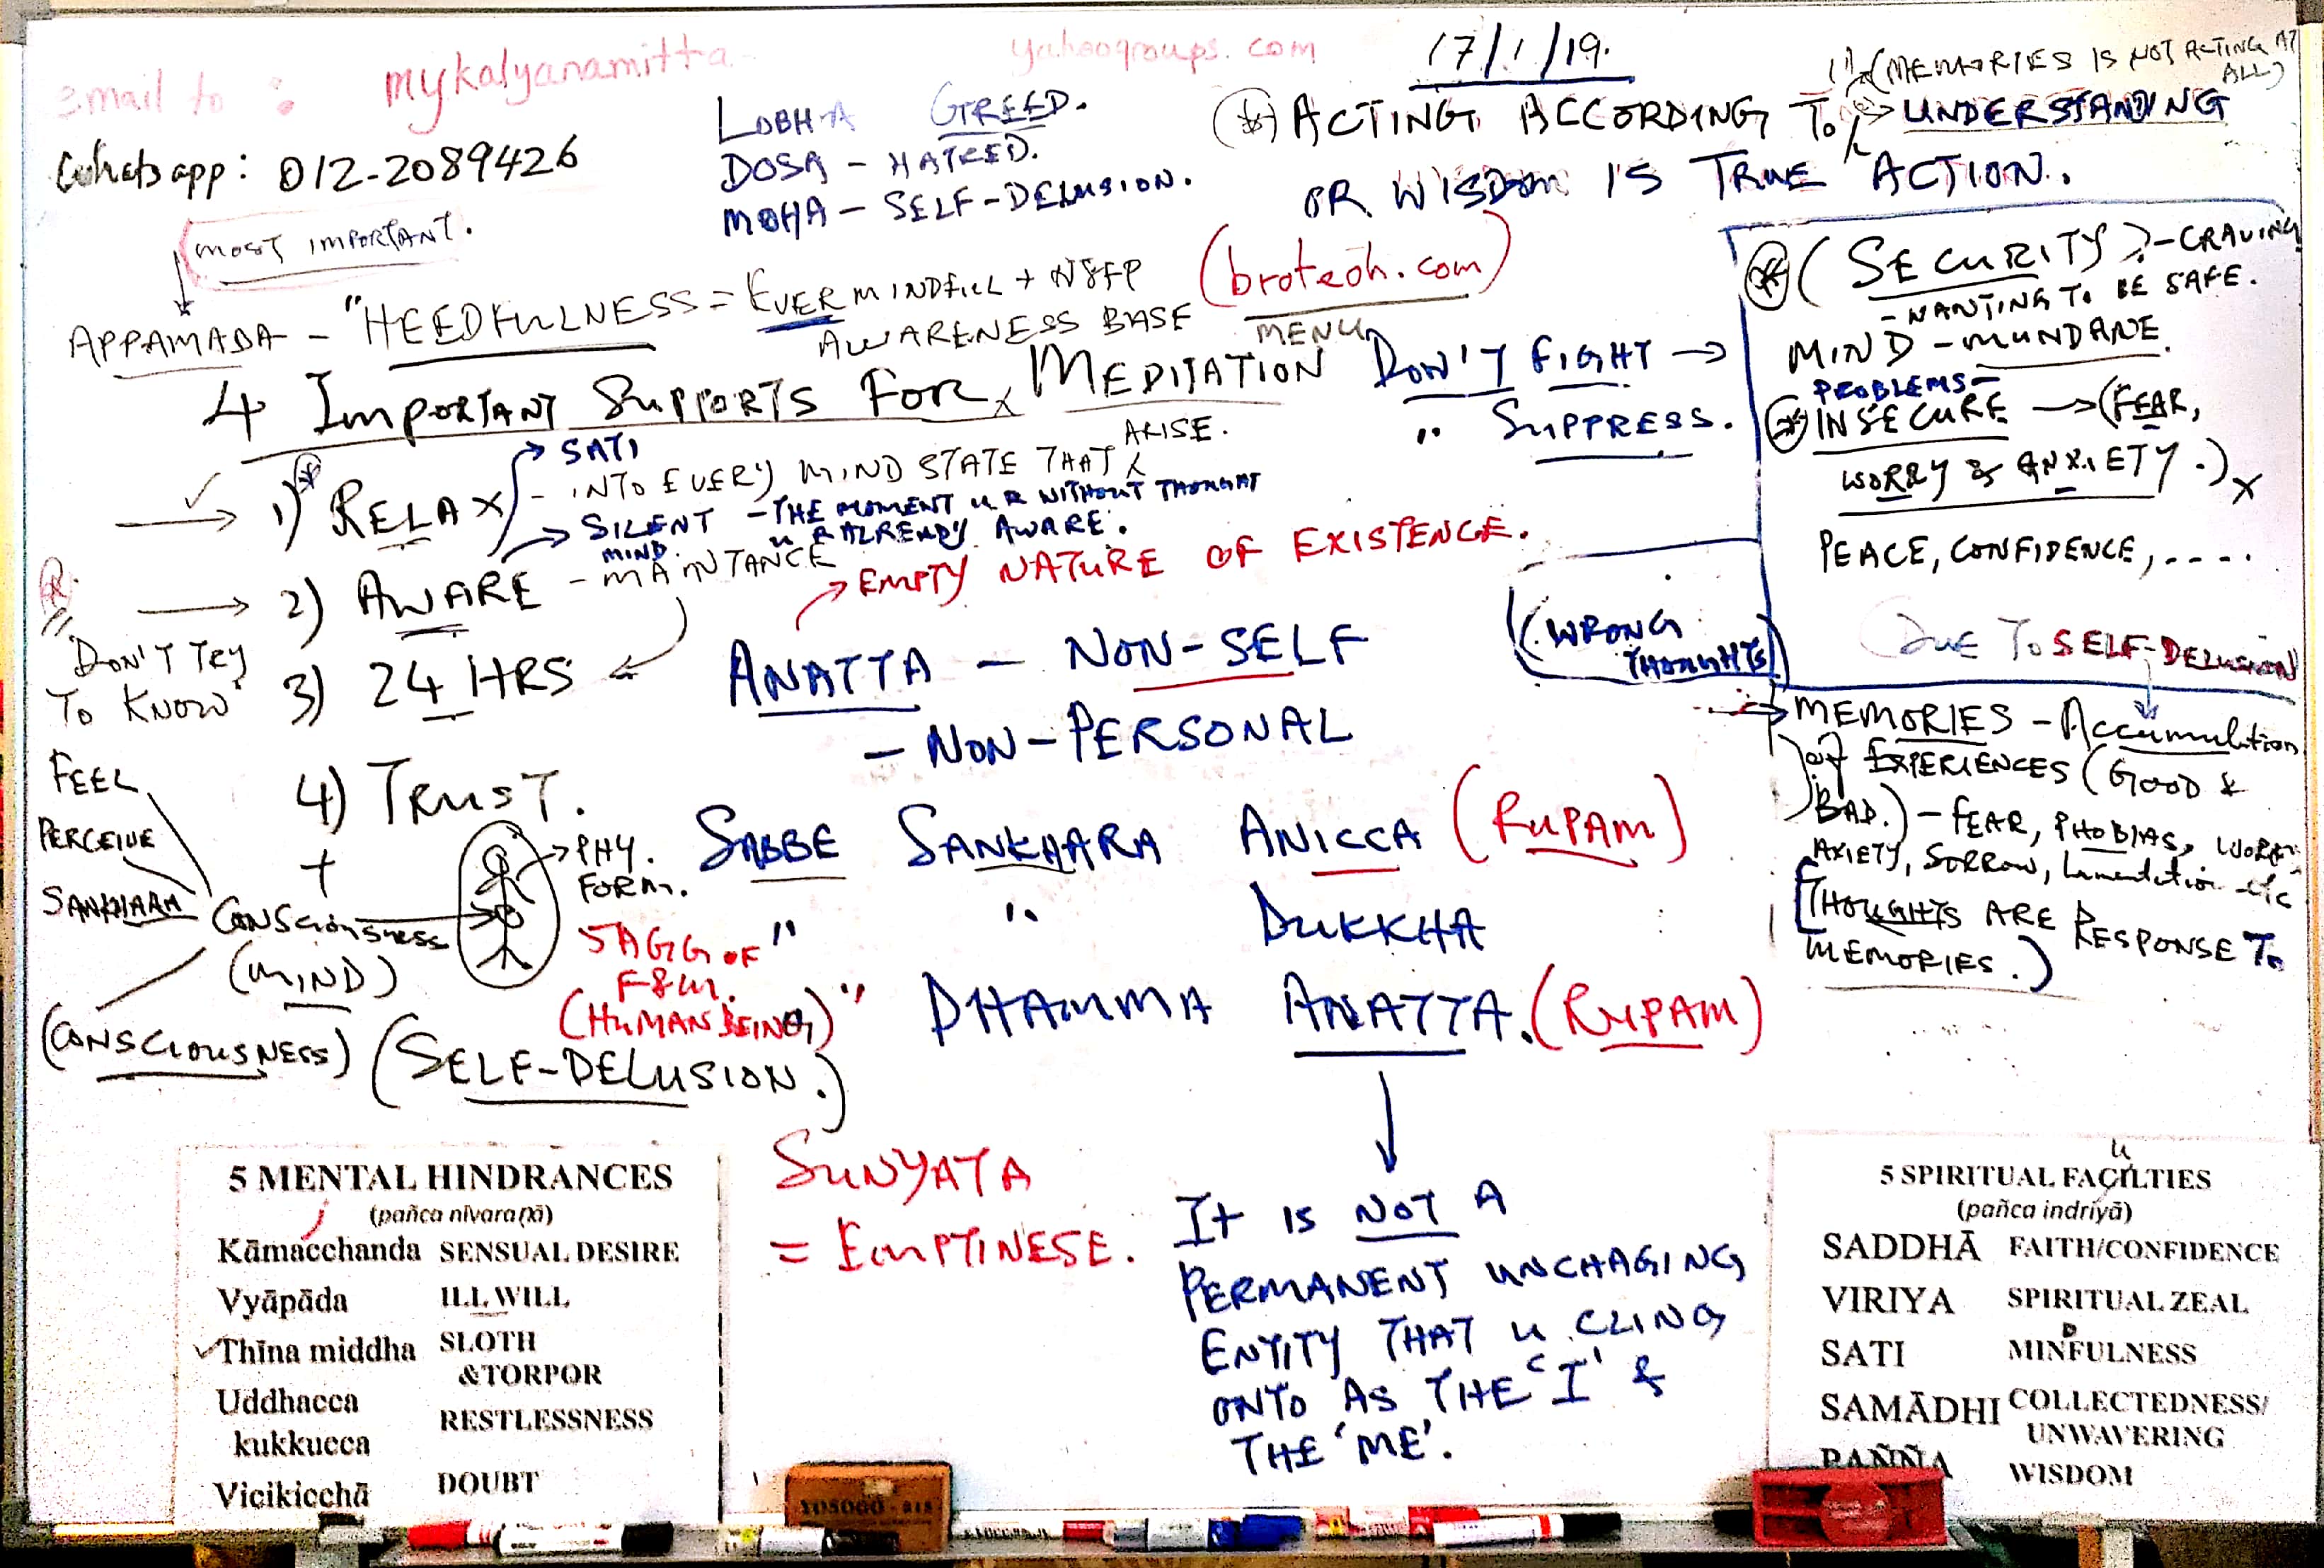 email to : mykalyanamitta yahoogroups.com
Whatsapp: 012-2089426
17/1/19.
LOBHA GREED.
DOSA - HATRED.
MOHA - SELF-DELUSION.
(MEMORIES IS NOT ACTING AT ALL)
ACTING ACCORDING TO UNDERSTANDING
OR WISDOM IS TRUE ACTION.
MOST IMPORTANT.
APPAMADA - "HEEDFULLNESS = EVER MINDFUL +
AWARENESS BASE
(broteoh.com)
MENU
4 IMPORTANT SUPPORTS FOR MEDITATION
DON'T FIGHT →
" SUPPRESS.
→ SATI
→ 1) RELAX - INTO EVERY MIND STATE THAT ARISE.
→ SILENT MIND. - THE MOMENT U R WITHOUT THOUGHT
U R ALREADY AWARE.
→ 2) AWARE - MAINTANCE
3) 24 HRS
4) TRUST.
+
"DON'T TRY
TO KNOW"
FEEL
PERCEIVE
SANKHARA
CONSCIOUSNESS
(MIND)
(CONSCIOUSNESS)
(SELF-DELUSION.)
→ PHY.
FORM.
5 AGG OF
F & M.
(HUMAN BEING)
→ EMPTY NATURE OF EXISTENCE.
ANATTA - NON-SELF
- NON-PERSONAL
SABBE SANKHARA ANICCA (RUPAM)
" " DUKKHA
" DHAMMA ANATTA. (RUPAM)
IT IS NOT A
PERMANENT UNCHAGING
ENTITY THAT U CLING
ONTO AS THE 'I' &
THE 'ME'.
SUNYATA
= EMPTINESE.
(SECURITY) - CRAVING
- WANTING TO BE SAFE.
MIND - MUNDANE.
PROBLEMS -
INSECURE → (FEAR,
WORRY & ANXIETY.)
PEACE, CONFIDENCE, ....
(WRONG
THOUGHTS)
(DUE TO SELF-DELUSION
→ MEMORIES - Accumulation
of EXPERIENCES (GOOD &
BAD.) - FEAR, PHOBIAS, WORRY
AXIETY, SORROW, Lamentation etc
[THOUGHTS ARE RESPONSE TO
MEMORIES.)
5 MENTAL HINDRANCES
(pañca nīvaraṇā)
Kāmacchanda SENSUAL DESIRE
Vyāpāda ILL WILL
Thīna middha SLOTH
&TORPOR
Uddhacca
kukkucca RESTLESSNESS
Vicikicchā DOUBT
5 SPIRITUAL FACILTIES
u
(pañca indriyā)
SADDHĀ FAITH/CONFIDENCE
VIRIYA SPIRITUAL ZEAL
D
SATI MINFULNESS
SAMĀDHI COLLECTEDNESS/
UNWAVERING
PAÑÑA WISDOM